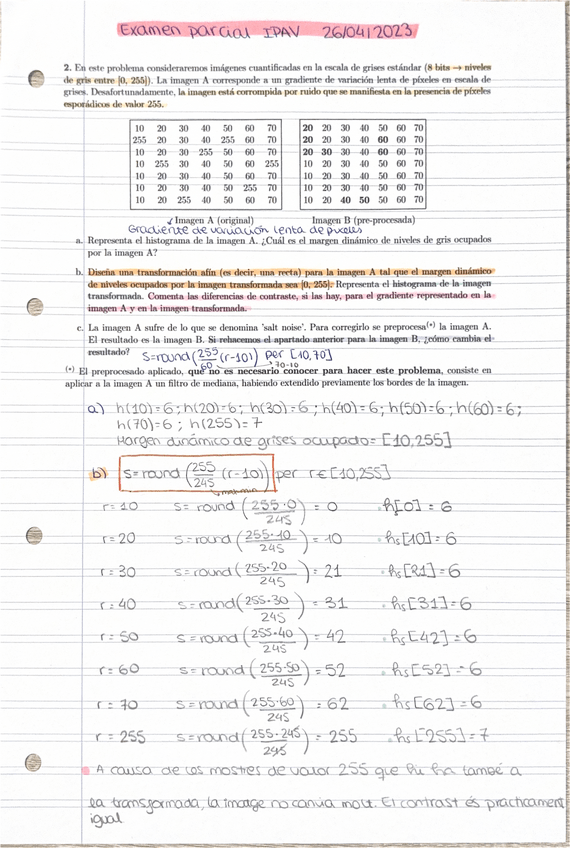 Examen parcial IPAV 26/04/2023
2. En este problema consideraremos imágenes cuantificadas en la escala de grises estándar (8 bits → niveles
de gris entre [0, 255]). La imagen A corresponde a un gradiente de variación lenta de píxeles en escala de
grises. Desafortunadamente, la imagen está corrompida por ruido que se manifiesta en la presencia de píxeles
esporádicos de valor 255.
10 20 30 40 50 60 70
255 20 30 40 255 60 70
10 20 30 255 50 60 70
10 255 30 40 50 60 255
10 20 30 40 50 60 70
10 20 30 40 50 255 70
10 20 255 40 50 60 70
20 20 30 40 50 60 70
20 20 30 40 60 60 70
20 30 30 40 60 60 70
10 20 30 40 50 60 70
10 20 30 40 50 60 70
10 20 30 40 50 60 70
10 20 40 50 50 60 70
Imagen A (original) Imagen B (pre-procesada)
Gradiente de variación lenta de píxeles
a. Representa el histograma de la imagen A. ¿Cuál es el margen dinámico de niveles de gris ocupados
por la imagen A?
b. Diseña una transformación afín (es decir, una recta) para la imagen A tal que el margen dinámico
de niveles ocupados por la imagen transformada sea [0, 255]. Representa el histograma de la imagen
transformada. Comenta las diferencias de contraste, si las hay, para el gradiente representado en la
imagen A y en la imagen transformada.
c. La imagen A sufre de lo que se denomina 'salt noise'. Para corregirlo se preprocesa(*) la imagen A.
El resultado es la imagen B. Si rehacemos el apartado anterior para la imagen B, ¿cómo cambia el
resultado? S=round(255/60 (r-10)) per [10,70]
70-10
(*) El preprocesado aplicado, que no es necesario conocer para hacer este problema, consiste en
aplicar a la imagen A un filtro de mediana, habiendo extendido previamente los bordes de la imagen.
a) h(10)=6; h(20)=6; h(30)=6; h(40)=6; h(50)=6; h(60)=6;
h(70)=6; h(255)=7
Margen dinámico de grises ocupado= [10,255]
b) S=round(255/245 (r-10)) per r∈[10,255]
r=10 S= round(255·0/245) = 0 h[0] = 6
r=20 S=round(255·10/245) = 10 hs[10]=6
r=30 S=round(255·20/245) = 21 hs[21]=6
r=40 S=round(255·30/245) = 31 hs[31]=6
r=50 S=round(255·40/245) = 42 hs[42]=6
r=60 S=round(255·50/245) = 52 hs[52]=6
r=70 S=round(255·60/245) = 62 hs[62]=6
r=255 S=round(255·245/245) = 255 hs[255]=7
A causa de les mostres de valor 255 que hi ha també a
la transformada, la imatge no canvia molt. El contrast és pràcticament
igual